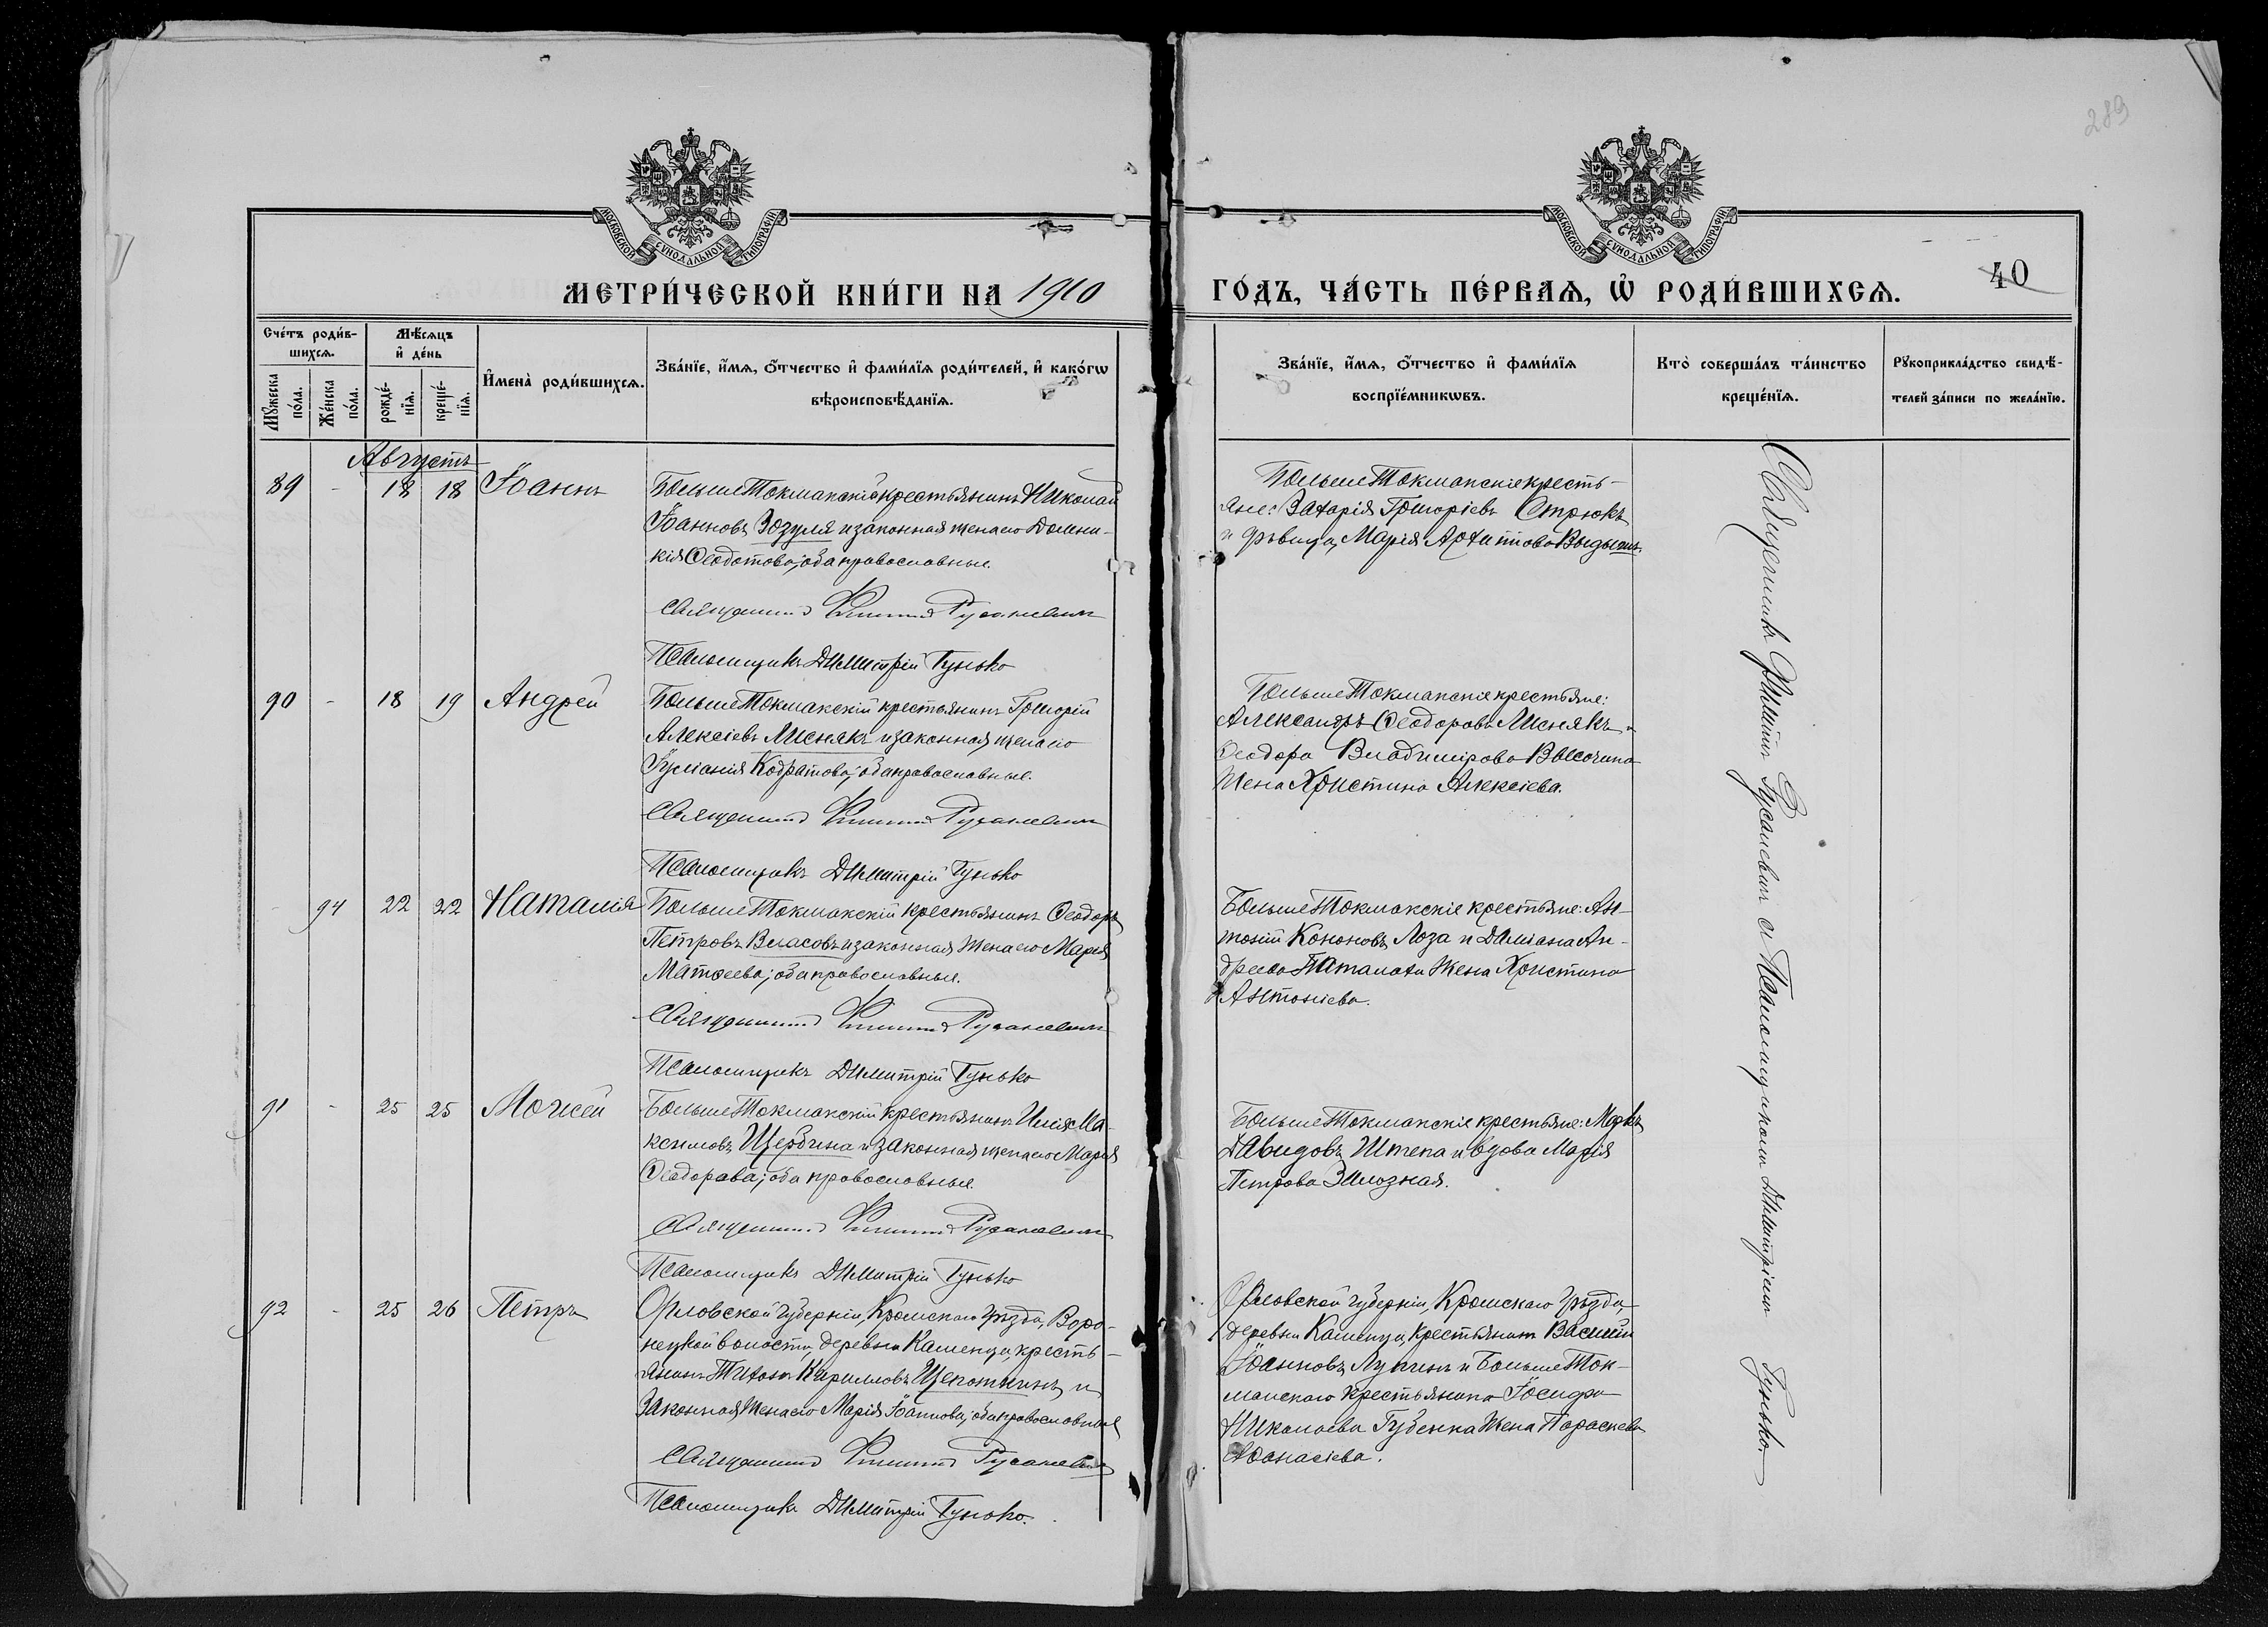 289
МОСКОВСКОЙ СУНОДАЛЬНОЙ ТИПОГРАФІИ
МОСКОВСКОЙ СУНОДАЛЬНОЙ ТИПОГРАФІИ
МЕТРИ́ЧЕСКОЙ КНИ́ГИ НА 1910
ГО́ДЪ, ЧА́СТЬ ПЕ́РВАЯ, Ѽ РОДИ́ВШИХСЯ.
40
Сче́тъ роди́в-
шихся.
Мꙋжеска по́ла.
Же́нска по́ла.
Мѣ́сяцъ
и҆ де́нь
рожде́-
нїя.
креще́-
нїя.
И҆мена̀ роди́вшихся.
Зва́нїе, и҆́мя, ѻ҆́тчество и҆ фами́лїя роди́телей, и҆ како́гѡ
вѣроисповѣ́данїя.
Зва́нїе, и҆́мя, ѻ҆́тчество и҆ фами́лїя
воспрїе́мникѡвъ.
Кто̀ соверша́лъ та́инство
креще́нїя.
Рꙋкоприкла́дство свидѣ́-
телей за́писи по жела́нїю.
Августъ
89 - 18 18 Іоаннъ
БольшеТокмакскій крестьянинъ Николай
Іоанновъ Зозуля и законная жена его Домни-
кія Ѳеодотова; оба православные.
Священникъ Филиппъ Русаневичъ
Псаломщикъ Димитрій Гунько
БольшеТокмакскіе кресть-
яне: Захарія Григоріевъ Стрюкъ
и дѣвица Марія Архипова
90 - 18 19 Андрей
БольшеТокмакскій крестьянинъ Григорій
Алексіевъ Лиснякъ и законная жена его
Іуліанія Кодратова; оба православные.
Священникъ Филиппъ Русаневичъ
Псаломщикъ Димитрій Гунько
БольшеТокмакскіе крестьяне:
Александръ Ѳеодоровъ Лиснякъ и
Ѳеодора Владимірова Высочина
жена Христина Алексіева.
- 94 22 22 Наталія
БольшеТокмакскій крестьянинъ Ѳеодоръ
Петровъ Власовъ и законная жена его Марія
Матѳеева; оба православные.
Священникъ Филиппъ Русаневичъ
Псаломщикъ Димитрій Гунько
БольшеТокмакскіе крестьяне: Ан-
тоній Кононовъ Лоза и Даміана Ан-
дреева Паталахи жена Христина
Антоніева.
91 - 25 25 Моисей
БольшеТокмакскій крестьянинъ Илія Ма-
ксимовъ Щербина и законная жена его Марія
Ѳеодорова; оба православные.
Священникъ Филиппъ Русаневичъ
Псаломщикъ Димитрій Гунько
БольшеТокмакскіе крестьяне: Маркъ
Давидовъ Штепа и вдова Марія
Петрова
92 - 25 26 Петръ
Орловской губерніи, Кромскаго уѣзда, Воро-
нецкой волости, деревни Каменца, кресть-
янинъ Тихонъ Кирилловъ Щепоткинъ и
законная жена его Марія Іоаннова; оба православные
Священникъ Филиппъ Русаневичъ
Псаломщикъ Димитрій Гунько.
Орловской губерніи, Кромскаго уѣзда,
деревни Каменца, крестьянинъ Василій
Іоанновъ Лупинъ и БольшеТок-
макскаго крестьянина Іосифа
Николаева Губенка жена Параскева
Аѳанасіева.
Священникъ Филиппъ Русаневичъ съ Псаломщикомъ Димитріемъ Гунько.